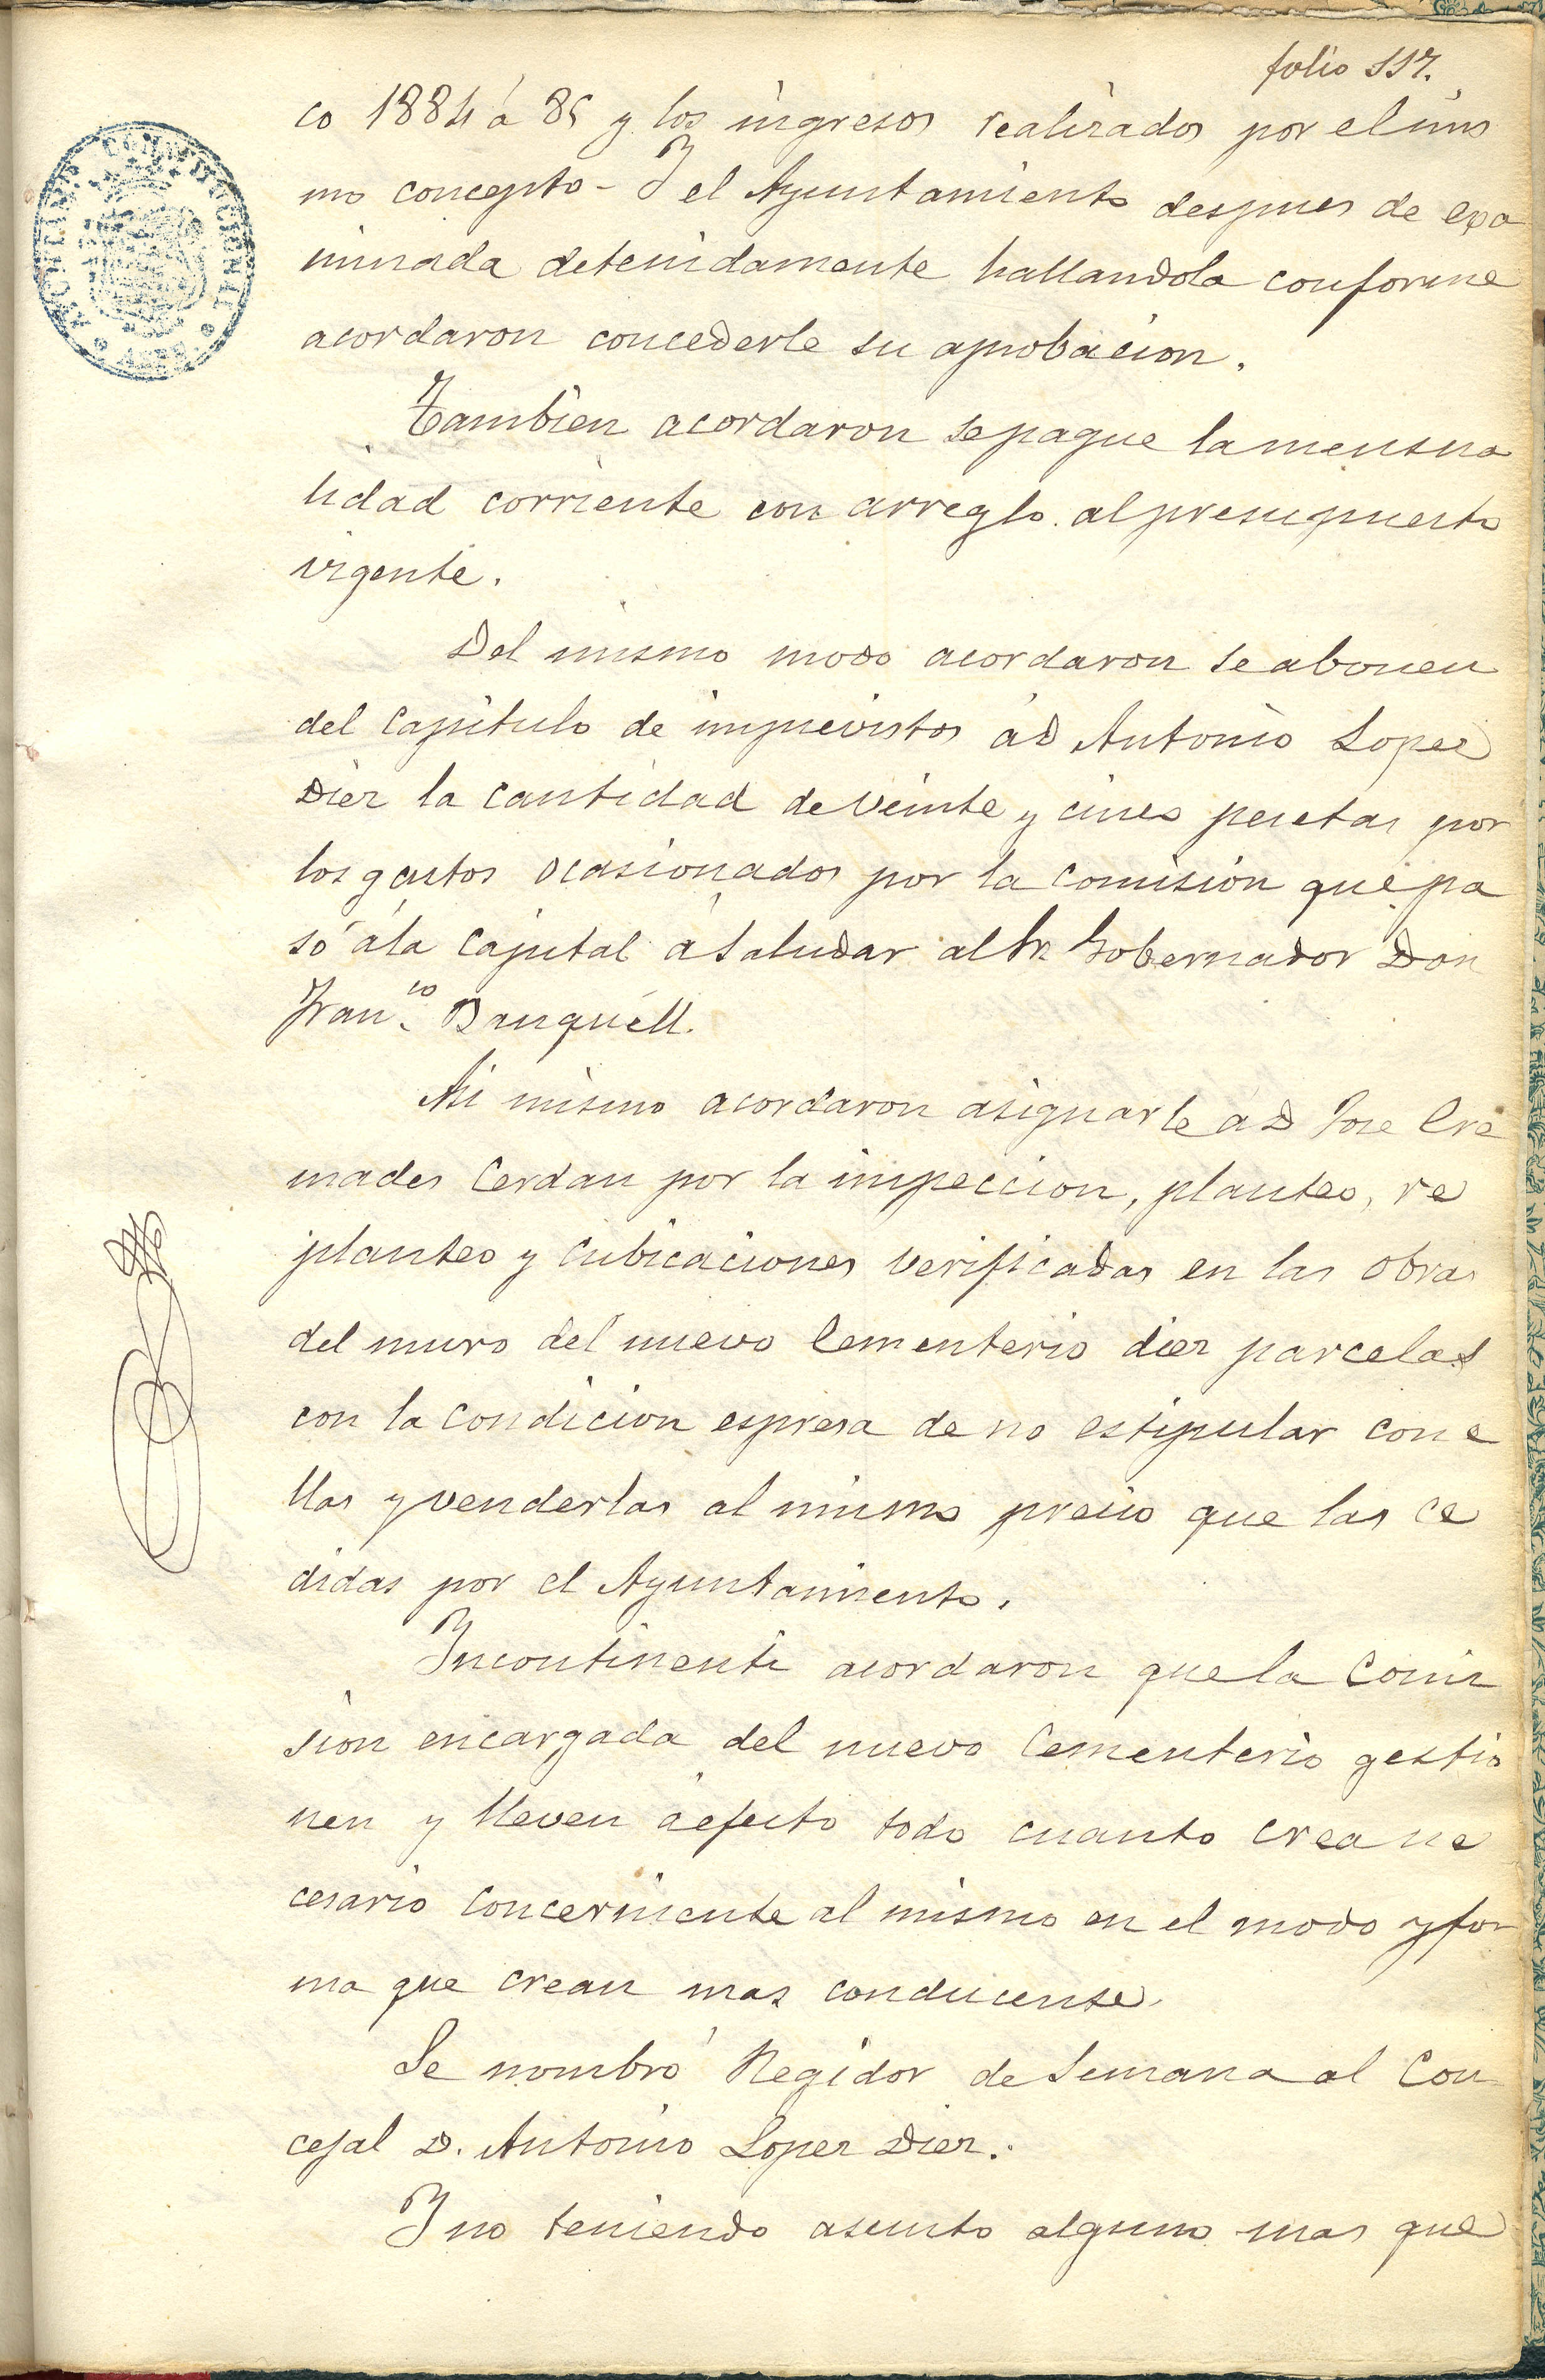 folio 117.
co 1884 á 85 y los ingresos realizados por el mis
mo concepto - Y el Ayuntamiento despues de exa
minada detenidamente hallandola conforme
acordaron concederle su aprobacion.
Tambien acordaron se pague la mensua
lidad corriente con arreglo al presupuesto
vigente.
Del mismo modo acordaron se abonen
del Capitulo de imprevistos á D Antonio Lopez
Diez la cantidad de veinte y cinco pesetas por
los gastos ocasionados por la comision que pa
só á la Capital á Saludar al Sr Gobernador Don
Fran.co Banquéll.
Asi mismo acordaron asignarle á D Jose Cre
mades Cerdan por la inspeccion, planteo, re
planteo y cubicaciones verificadas en las obras
del muro del nuevo Cementerio diez parcelas
con la condicion espresa de no estipular con e
llas y venderlas al mismo precio que las ce
didas por el Ayuntamiento.
Incontinenti acordaron que la Comi
sion encargada del nuevo Cementerio gestio
nen y lleven á efecto todo cuanto crea ne
cesario concerniente al mismo en el modo y for
ma que crean mas conducente.
Se nombró Regidor de Semana al Con
cejal D. Antonio Lopez Diez.
Y no teniendo asunto alguno mas que